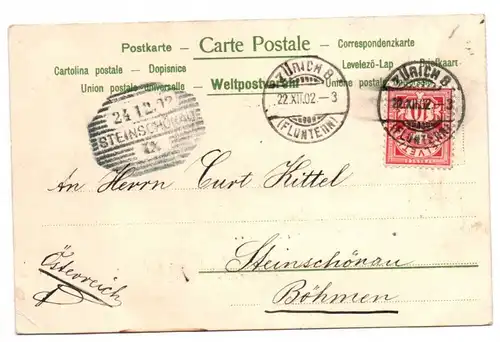 Postkarte - Carte Postale - Correspondenzkarte
Cartolina postale - Dopisnice Levelező-Lap Briefkaart
Union postale universelle - Weltpostverein - Unione postale
ZÜRICH 8
22.XII.02.-3
(FLUNTERN)
ZÜRICH 8
22.XII.02.-3
(FLUNTERN)
10
24.12.02
STEINSCHÖNAU
An Herrn Curt Kittel
Steinschönau
Böhmen
Österreich